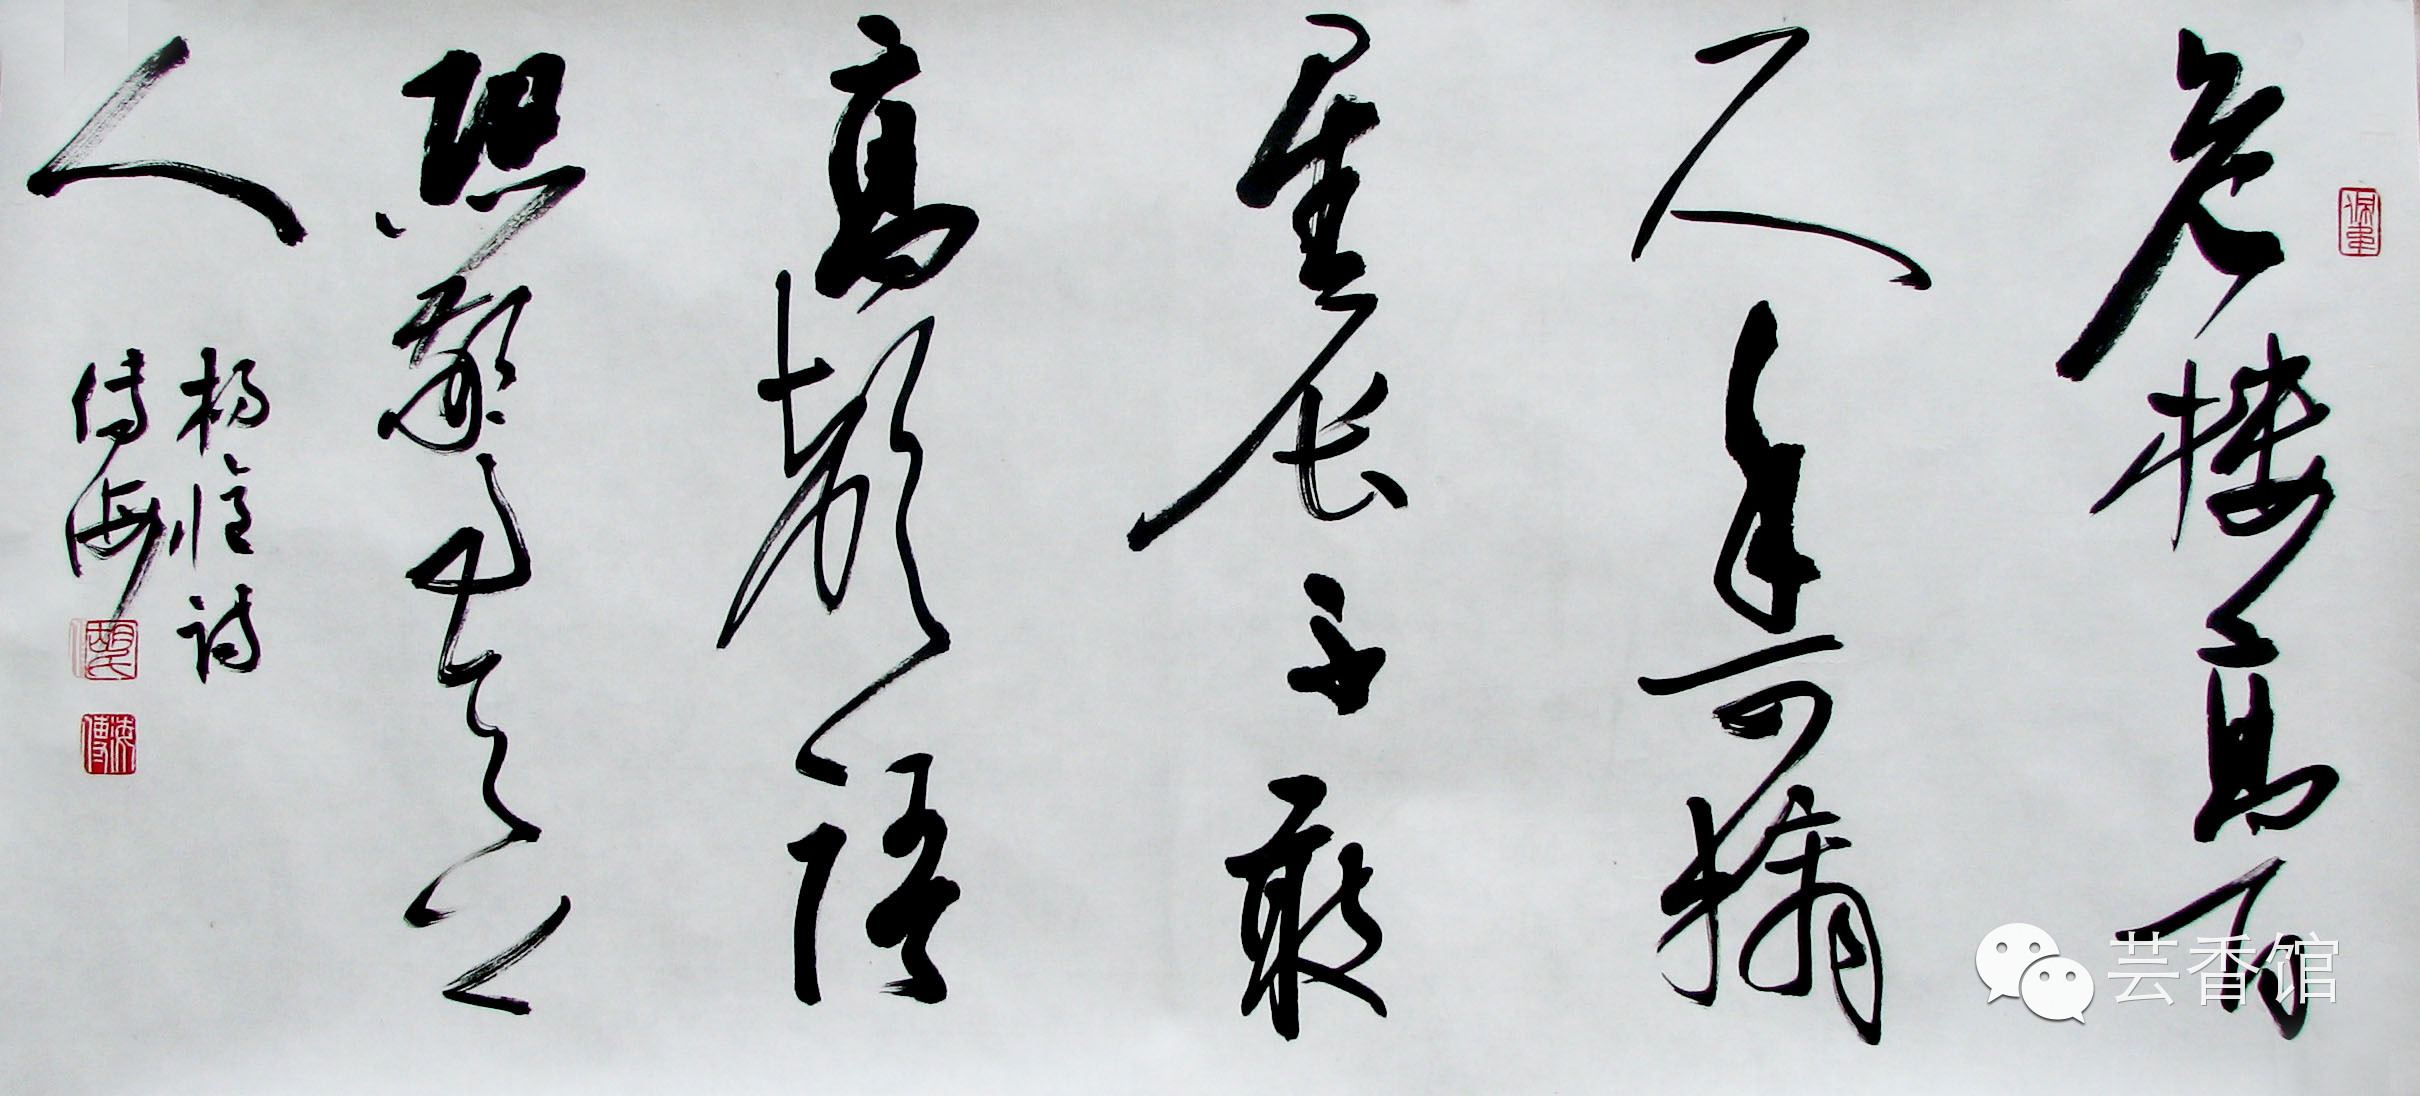 危楼高百
尺手可摘
星辰不敢
高聲语
恐驚天上
人
杨憶诗
传海
芸香馆